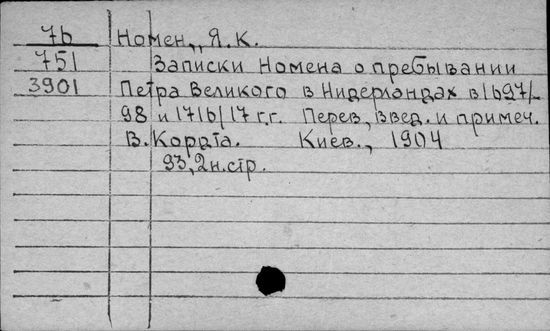 76 Номен,, Я. К.
751 Записки Номена о пребывании
3901 Петра Великого в Нидерландах в 1697/-
98 и 1716/17 г.г. Перев., введ. и примеч.
В. Кордта. Киев., 1904
93, 2н. стр.